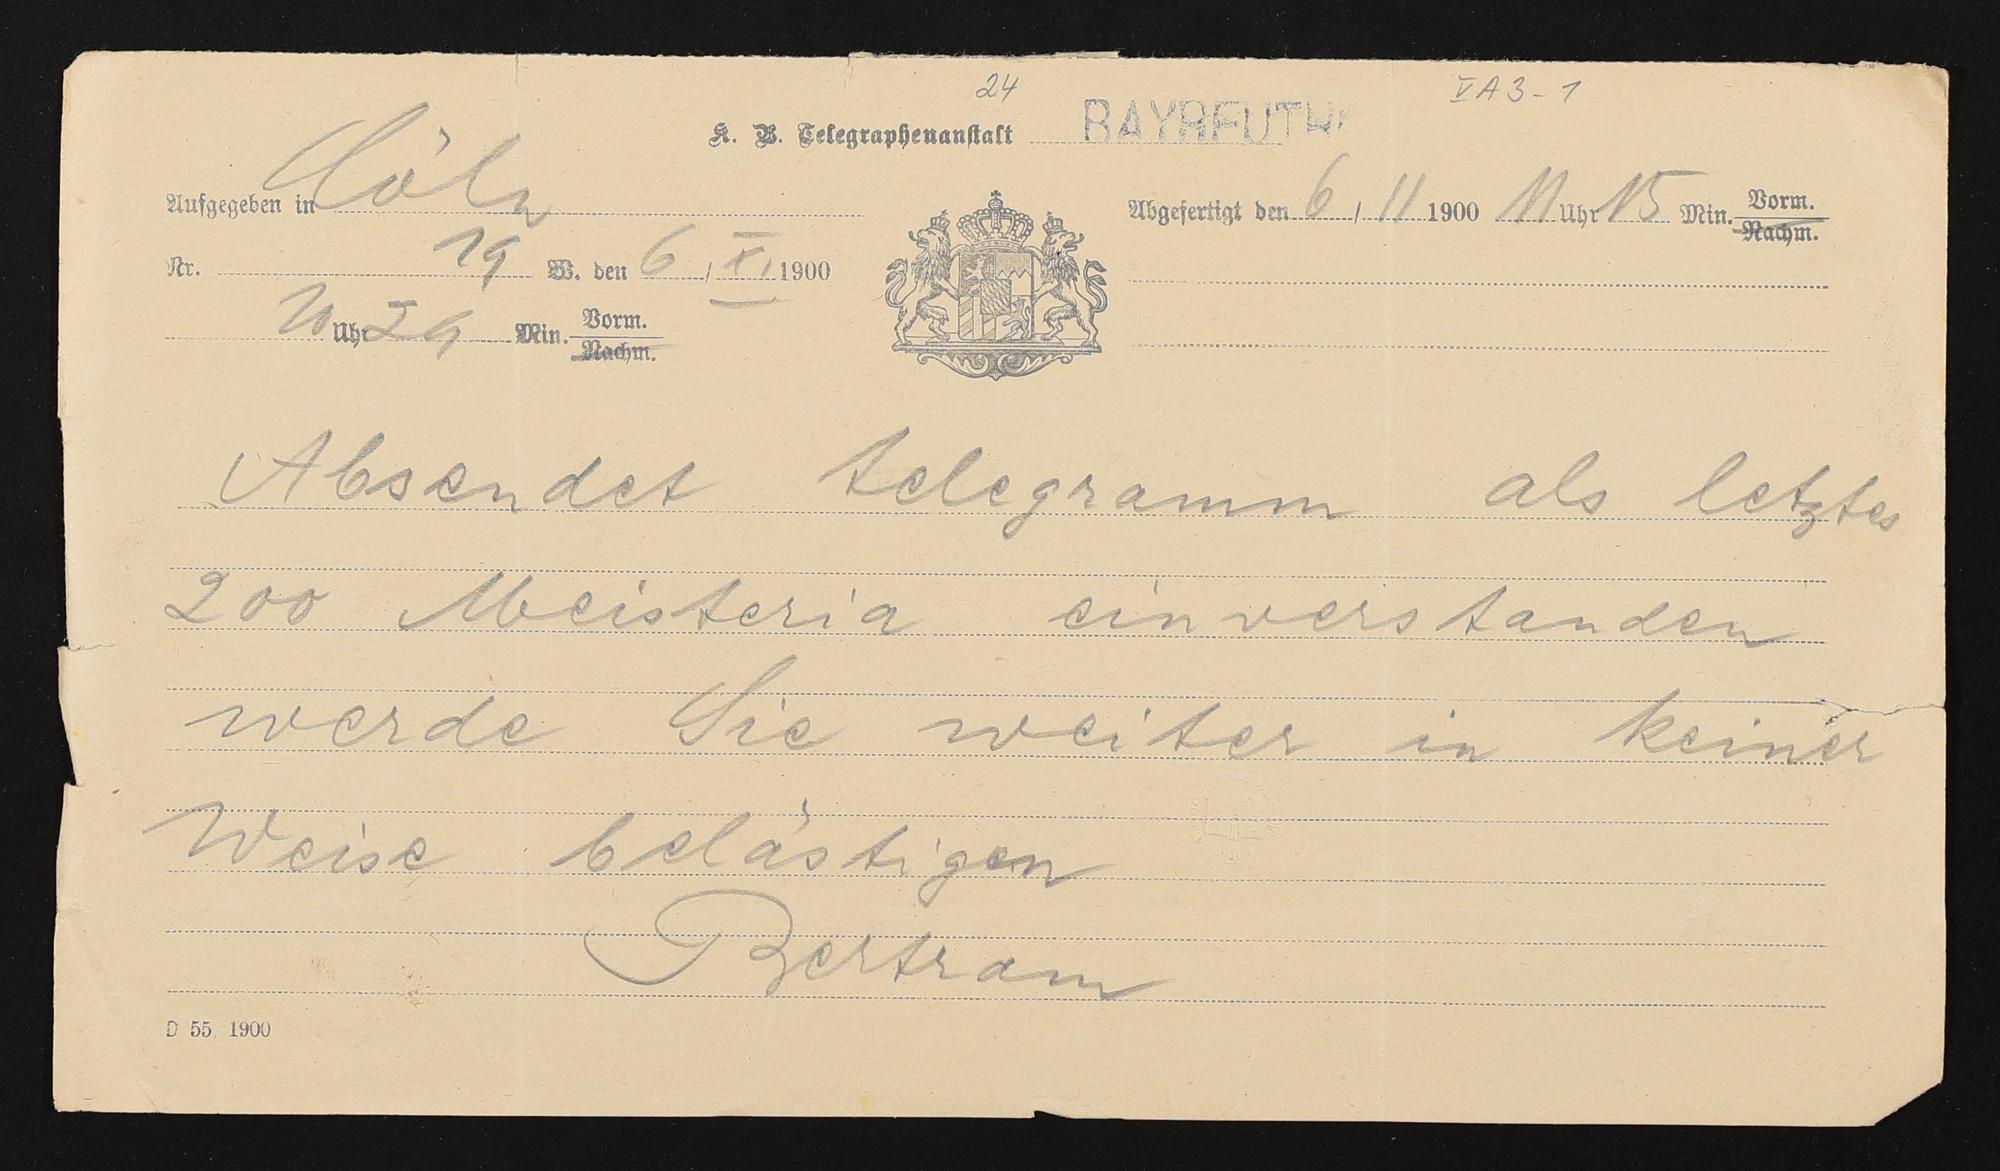 24
V A 3 - 1
K. B. Telegraphenanstalt BAYREUTH
Aufgegeben in Cöln
Abgefertigt den 6 / 11 1900 11 Uhr 15 Min. Vorm.
Nachm.
Nr. 19 W. den 6 / XI 1900
10 Uhr Min. Vorm.
Nachm.
Absendet telegramm als letztes
200 Meisteria einverstanden
werde Sie weiter in keiner
Weise belästigen
Bertram
D 55 1900